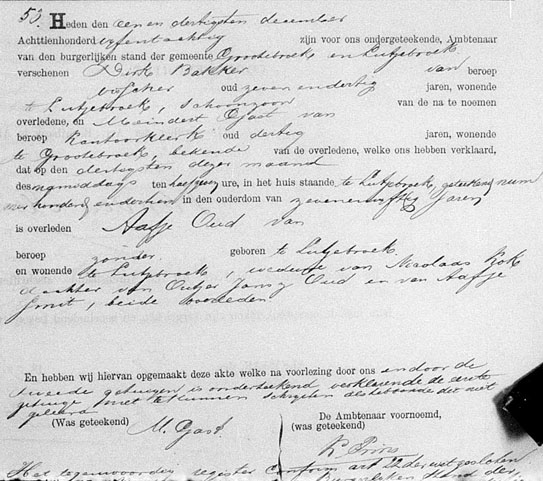 58. Heden den een en dertigsten december
Achttienhonderd vijfentachtig zijn voor ons ondergeteekende, Ambtenaar
van den burgerlijken stand der gemeente Grootebroek en Lutjebroek
verschenen Dirk Bakker van beroep
oud zeven en dertig jaren, wonende
te Lutjebroek, schoonzoon van de na te noemen
overledene, en Meindert Gast van
beroep Kantoorklerk oud dertig jaren, wonende
te Grootebroek, bekende van de overledene, welke ons hebben verklaard,
dat op den dertigsten dezer maand
des namiddags ten half zeven ure, in het huis staande te Lutjebroek, geteekend num
mer honderd en in den ouderdom van zevenenvijftig jaren
is overleden Aafje Oud van
beroep zonder geboren te Lutjebroek
en wonende te Lutjebroek, weduwe van Nicolaas Kok
dochter van Jansz Oud en van Aafje
beide overleden
En hebben wij hiervan opgemaakt deze akte welke na voorlezing door ons en door de
tweede getuigen is onderteekend verklarende de eerste
getuige niet te kunnen schrijven als hebbende dit niet
geleerd
(Was geteekend) M. Gast.
De Ambtenaar voornoemd,
(was geteekend)
Het tegenwoordig register conform art